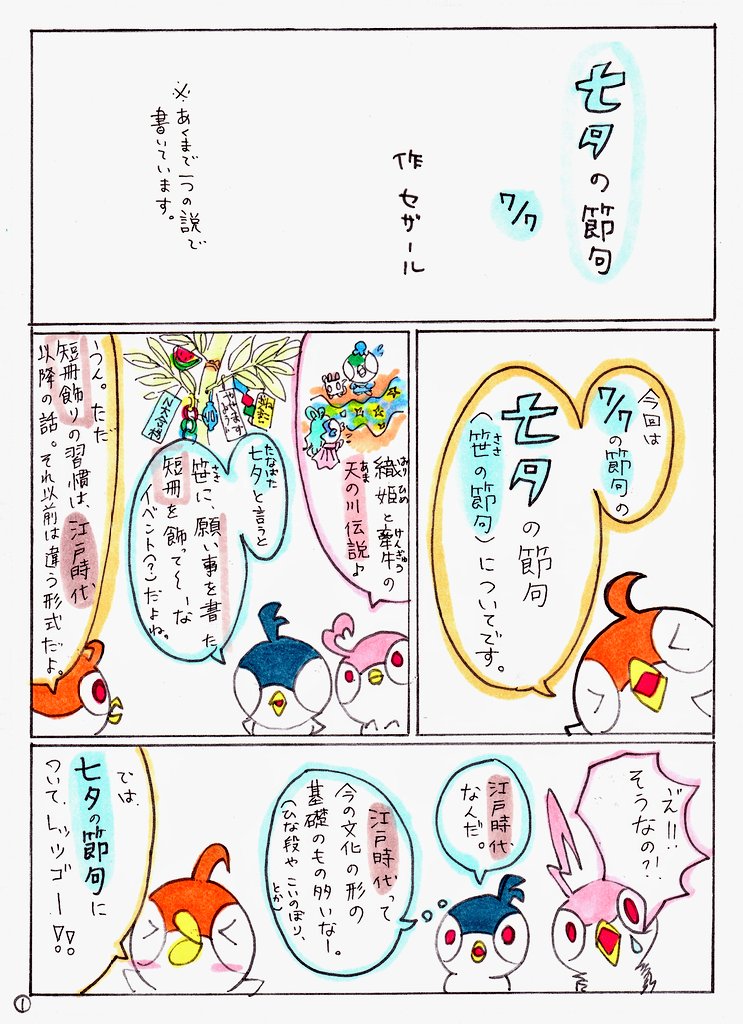 七夕の節句
7/7
作 セザール
※あくまで一つの説で
書いています。
今回は
7/7の節句の
七夕の節句
(笹の節句)についてです。
ささ
織姫と牽牛の
おりひめ
けんぎゅう
天の川伝説♪
あま
七夕と言うと
たなばた
笹に、願い事を書いた
ささ
短冊を飾って〜、な
イベント(?)だよね。
乙大合格
うーん。ただ
短冊飾りの習慣は、江戸時代
以降の話。それ以前は違う形式だよ。
そうなの?!
江戸時代
なんだ。
江戸時代って
今の文化の形の
基礎のもの多いなー。
(ひな段や、こいのぼり、
とか)
では、
七夕の節句に
ついて、レッツゴー!!
1